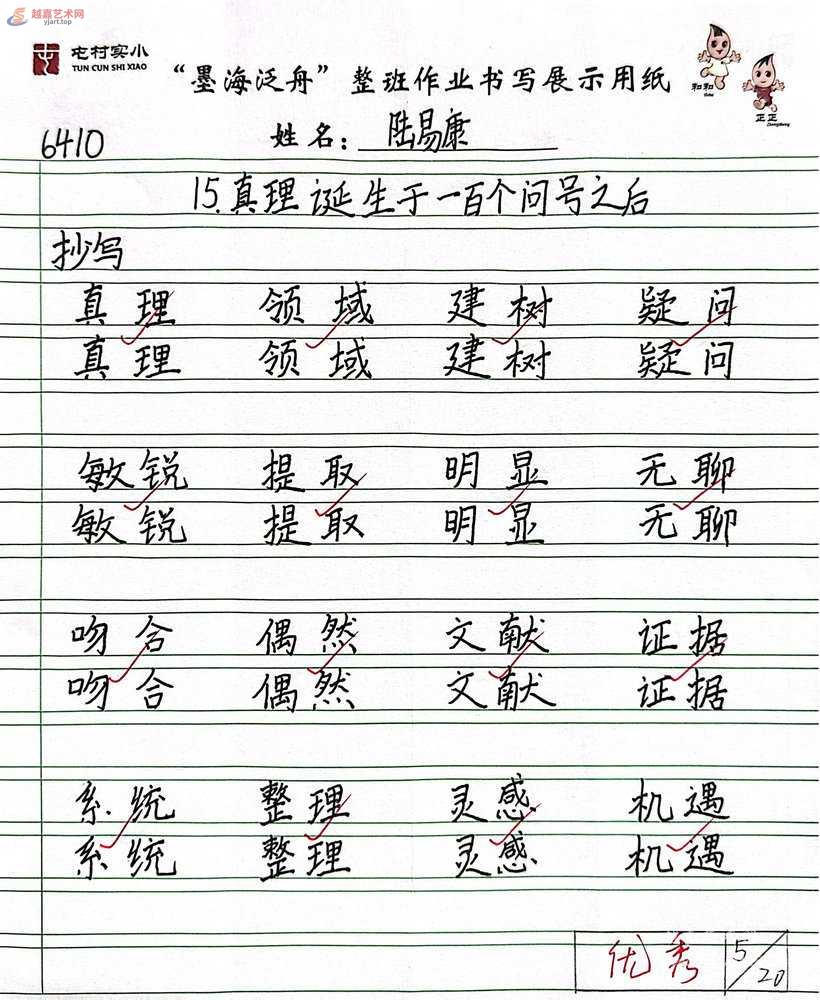 越嘉艺术网
yjart.top
屯村实小
TUN CUN SHI XIAO
“墨海泛舟”整班作业书写展示用纸
和和
正正
6410
姓名：陆易康
15.真理诞生于一百个问号之后
抄写
真理 领域 建树 疑问
真理 领域 建树 疑问
敏锐 提取 明显 无聊
敏锐 提取 明显 无聊
吻合 偶然 文献 证据
吻合 偶然 文献 证据
系统 整理 灵感 机遇
系统 整理 灵感 机遇
优秀 5/20